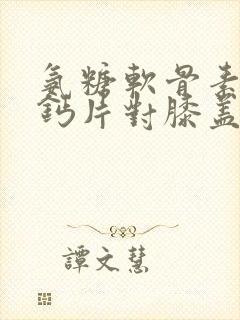 氨糖軟骨素
鈣片對膝蓋
譚文慧